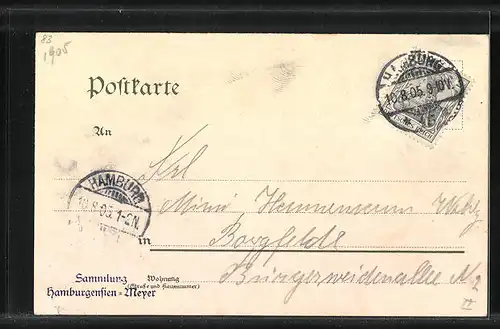 83
1905
Postkarte
HAMBURG
12.8.05. 9-10V.
An
HAMBURG
12.8.05. 1-2N.
Frl.
Mimi Hannemann
in
Borgfelde
Bürgerweidenallee № 2
II
Sammlung
Hamburgensien - Meyer
Wohnung
(Straße und Hausnummer)